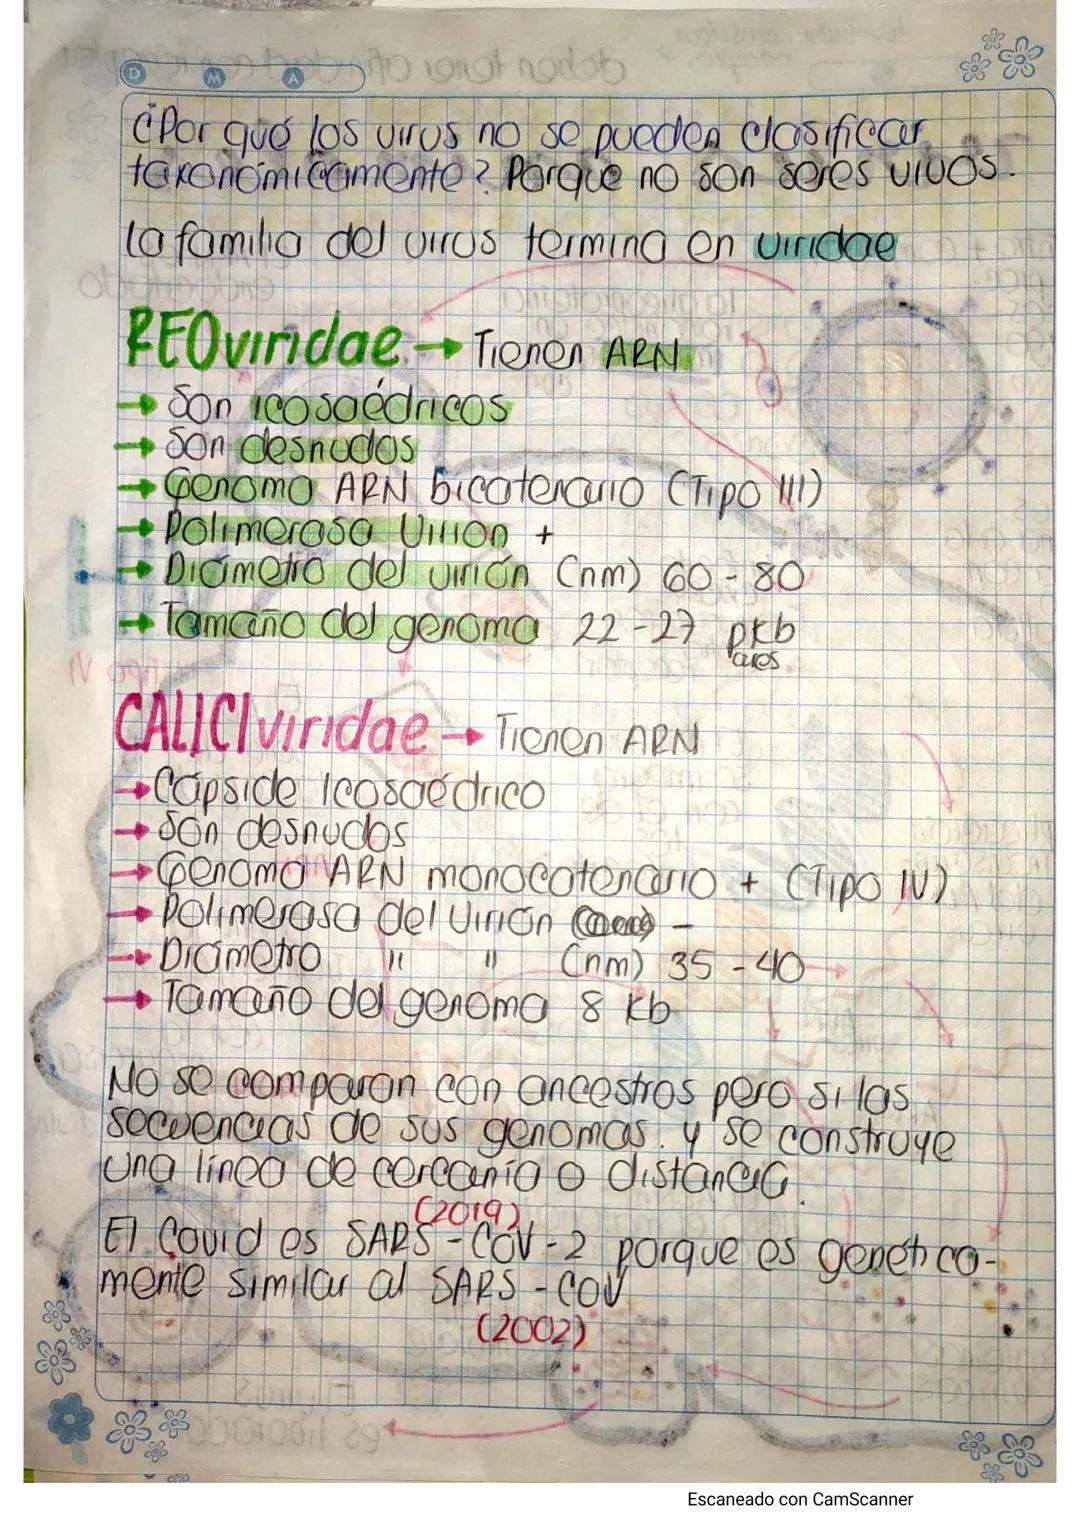 D M A
¿Por qué los virus no se pueden clasificar
taxonómicamente? Porque no son seres vivos.
La familia del virus termina en viridae
REOviridae → Tienen ARN
→ Son icosaédricos
→ Son desnudos
→ Genoma ARN bicatenario (Tipo III)
→ Polimerasa Virion +
→ Diámetro del virión (nm) 60 - 80
→ Tamaño del genoma 22 - 27 pkb
ares
CALICIviridae → Tienen ARN
→ Cápside Icosaédrico
→ Son desnudos
→ Genoma ARN monocatenario + (Tipo IV)
→ Polimerasa del Virión -
→ Diámetro " " (nm) 35 - 40
→ Tamaño del genoma 8 kb
No se comparan con ancestros pero si las
secuencias de sus genomas. y se construye
una línea de cercanía o distancia.
(2019)
El Covid es SARS - COV - 2 porque es genética-
mente similar al SARS - COV
(2002)
Escaneado con CamScanner